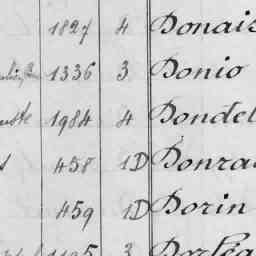 1827 4 Donais
1336 3 Donio
1984 4 Dondel
458 1D Donra
459 1D Dorin
3 Dorléa